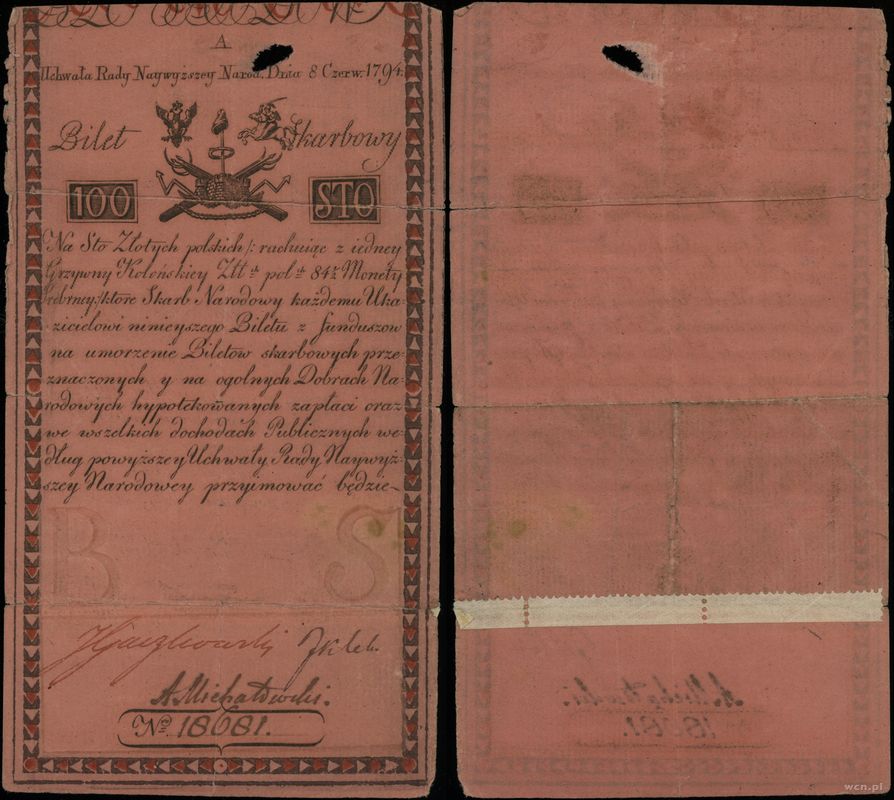 A
Uchwała Rady Naywyższey Narod. Dnia 8 Czerw. 1794.
Bilet Skarbowy
100 STO
Na Sto Złotych polskich /: rachuiąc z iedney
Grzywny Koleńskiey Złł. pol. 84½ Monety
Srebrney :/ ktore Skarb Narodowy każdemu Uka=
zicielowi ninieyszego Biletu z funduszow
na umorzenie Biletow skarbowych prze=
znaczonych y na ogolnych Dobrach Na=
rodowych hypotekowanych zapłaci oraz
we wszelkich dochodach Publicznych we=
dług powyższey Uchwały Rady Naywyż=
szey Narodowey przyimować będzie
B S
A. Michałowski.
No 18081.
wcn.pl